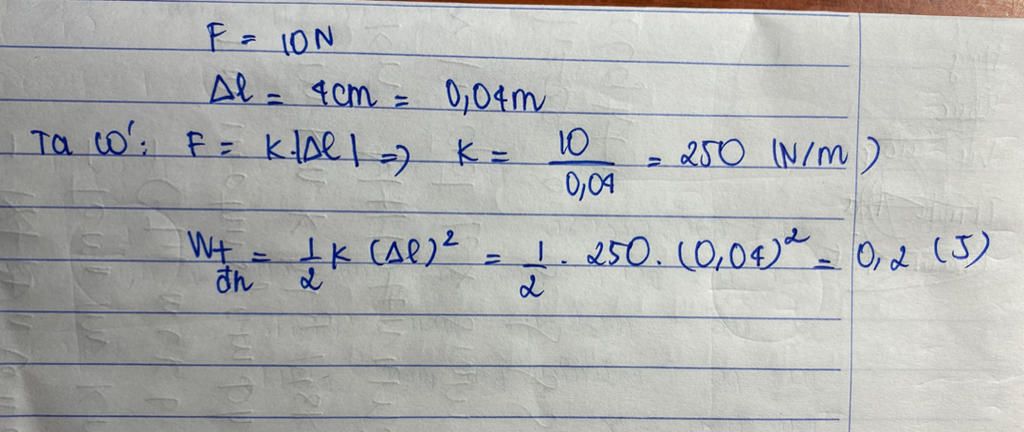 F = 10N
Δl = 4cm = 0,04m
Ta có: F = K|Δl| => K = 10/0,04 = 250 (N/m)
Wt đh = 1/2 K (Δl)² = 1/2 . 250 . (0,04)² = 0,2 (J)